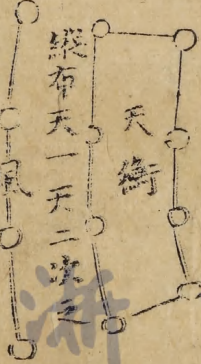 天衡
縱布天一天二次之
風